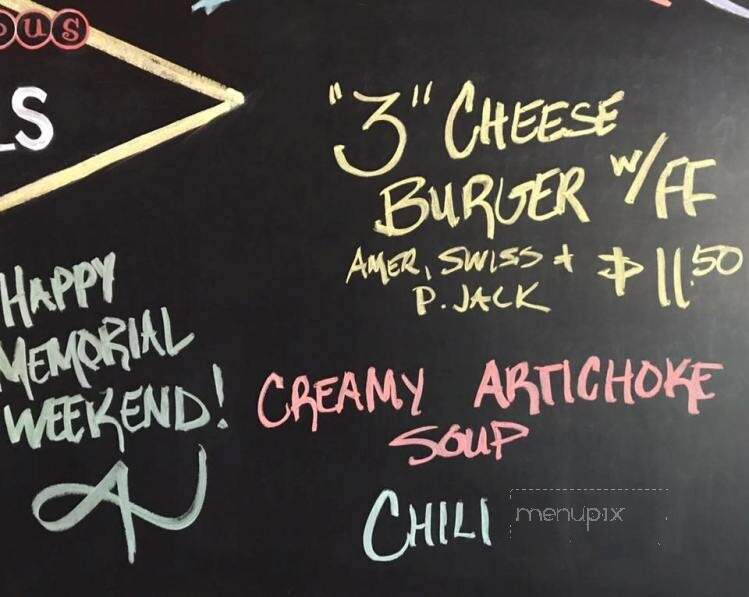 ous
LS
"3" CHEESE
BURGER W/FF
AMER, SWISS +
P. JACK
$11.50
HAPPY
MEMORIAL
WEEKEND!
CREAMY ARTICHOKE
SOUP
CHILI
menupix